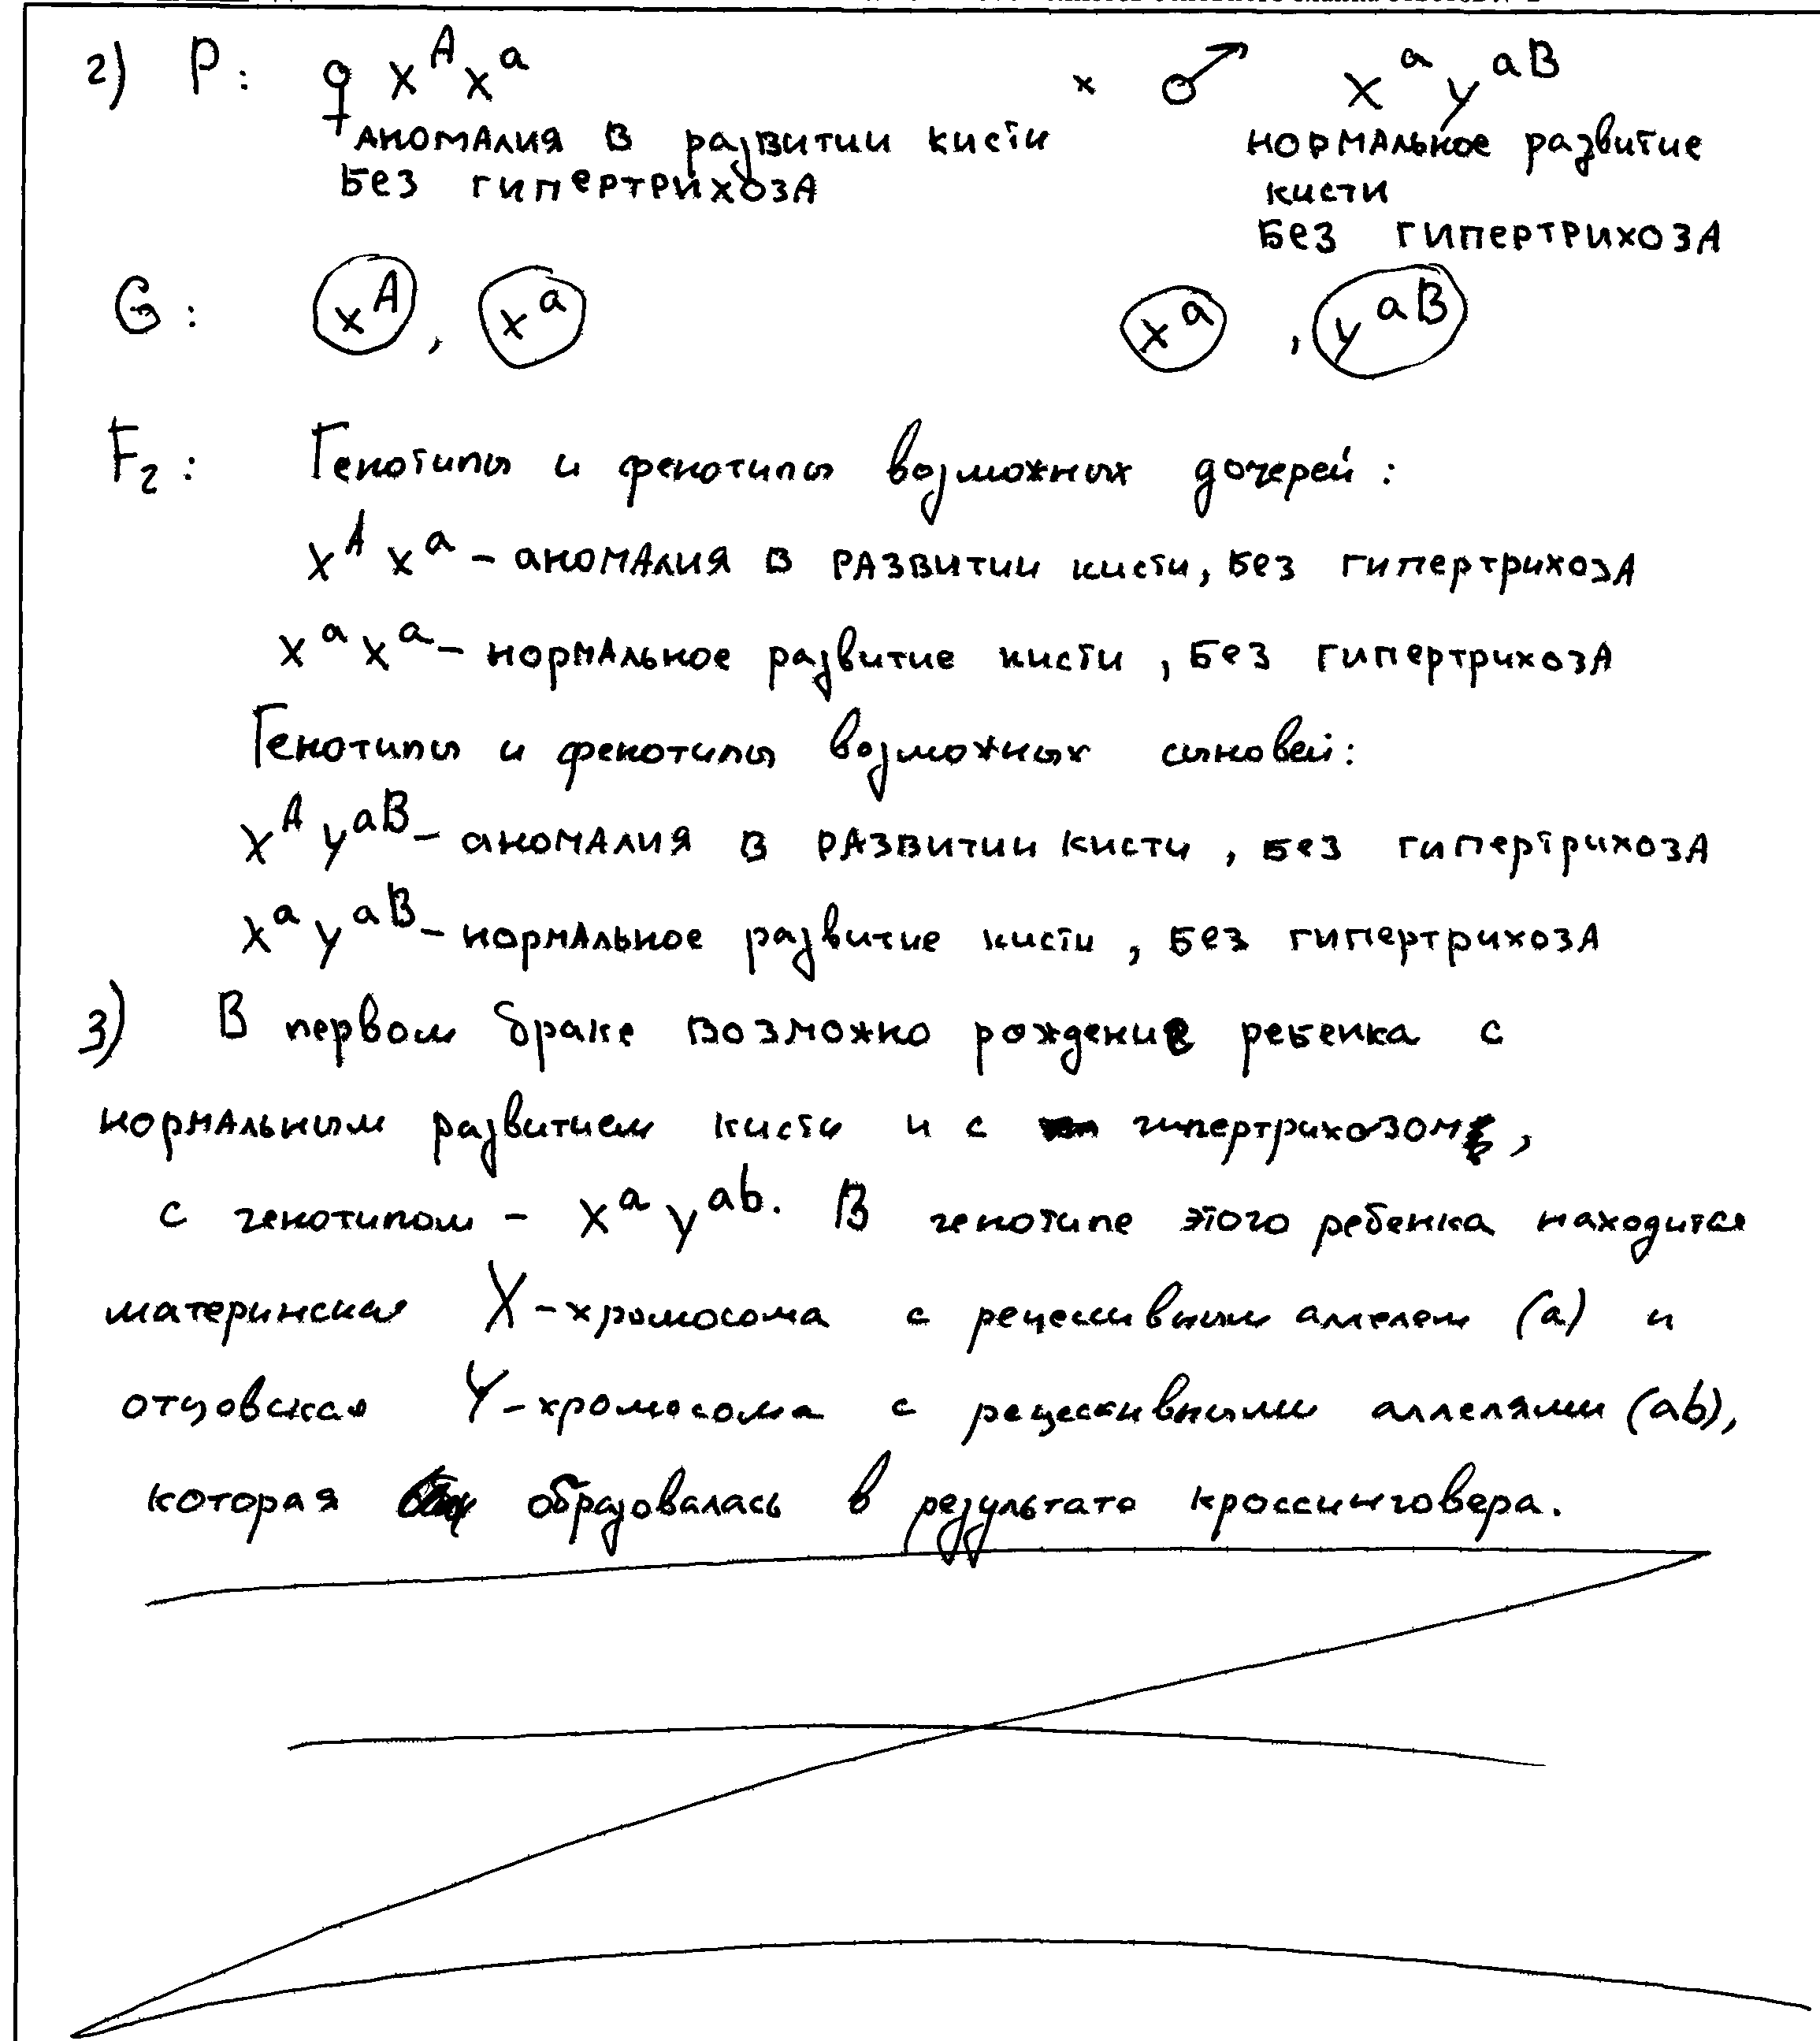 2) P: ♀ X^A X^a × ♂ X^a Y^aB
аномалия в развитии кисти нормальное развитие
без гипертрихоза кисти
без гипертрихоза
G: X^A, X^a X^a, Y^aB
F2: Генотипы и фенотипы возможных дочерей:
X^A X^a – аномалия в развитии кисти, без гипертрихоза
X^a X^a – нормальное развитие кисти, без гипертрихоза
Генотипы и фенотипы возможных сыновей:
X^A Y^aB – аномалия в развитии кисти, без гипертрихоза
X^a Y^aB – нормальное развитие кисти, без гипертрихоза
3) В первом браке возможно рождение ребенка с
нормальным развитием кисти и с гипертрихозом,
с генотипом – X^a Y^ab. В генотипе этого ребенка находится
материнская X-хромосома с рецессивным аллелем (a) и
отцовская Y-хромосома с рецессивными аллелями (ab),
которая образовалась в результате кроссинговера.